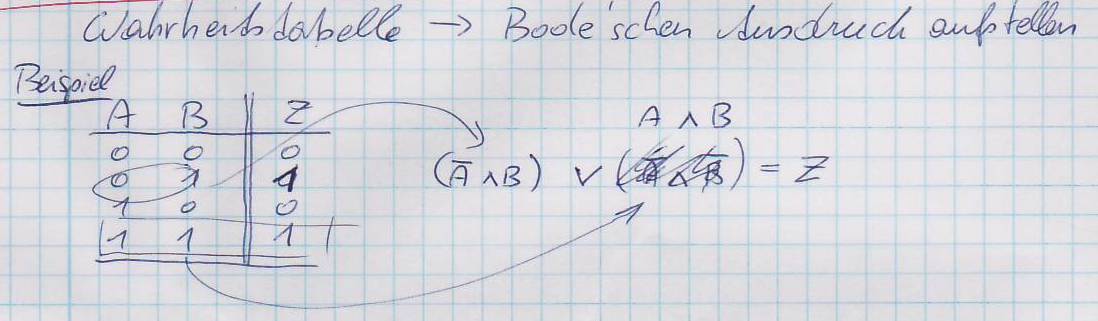 Wahrheitstabelle → Boole'schen Ausdruck aufstellen
Beispiel
A B Z
0 0 0
0 1 1
1 0 0
1 1 1
A ∧ B
(A̅ ∧ B) ∨ ( ) = Z